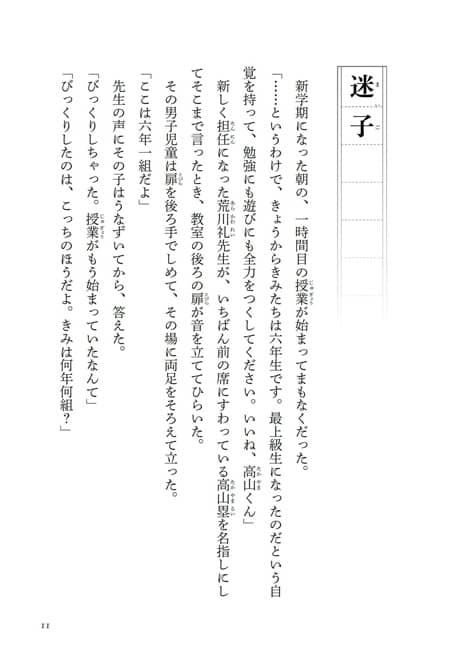 迷子
新学期になった朝の、一時間目の授業が始まってまもなくだった。
「……というわけで、きょうからきみたちは六年生です。最上級生になったのだという自
覚を持って、勉強にも遊びにも全力をつくしてください。いいね、高山くん」
新しく担任になった荒川礼先生が、いちばん前の席にすわっている高山塁を名指しにし
てそこまで言ったとき、教室の後ろの扉が音を立ててひらいた。
その男子児童は扉を後ろ手でしめて、その場に両足をそろえて立った。
「ここは六年一組だよ」
先生の声にその子はうなずいてから、答えた。
「びっくりしちゃった。授業がもう始まっていたなんて」
「びっくりしたのは、こっちのほうだよ。きみは何年何組?」
11